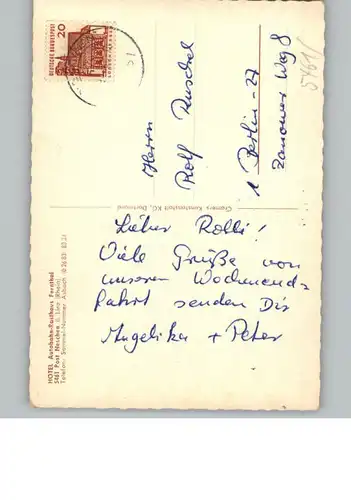 Lieber Rolli!
Viele Grüße von
unserer Wochenend-
fahrt senden Dir
Angelika + Peter
Herrn
Rolf
1 Berlin-27
Zanower Weg 8
5461/
DEUTSCHE BUNDESPOST
20
HOTEL Autobahn-Rasthaus Fernthal
5461 Post Neschen ü. Linz (Rhein)
Telefon: Sammel-Nummer Asbach
Cramers Kunstanstalt KG, Dortmund